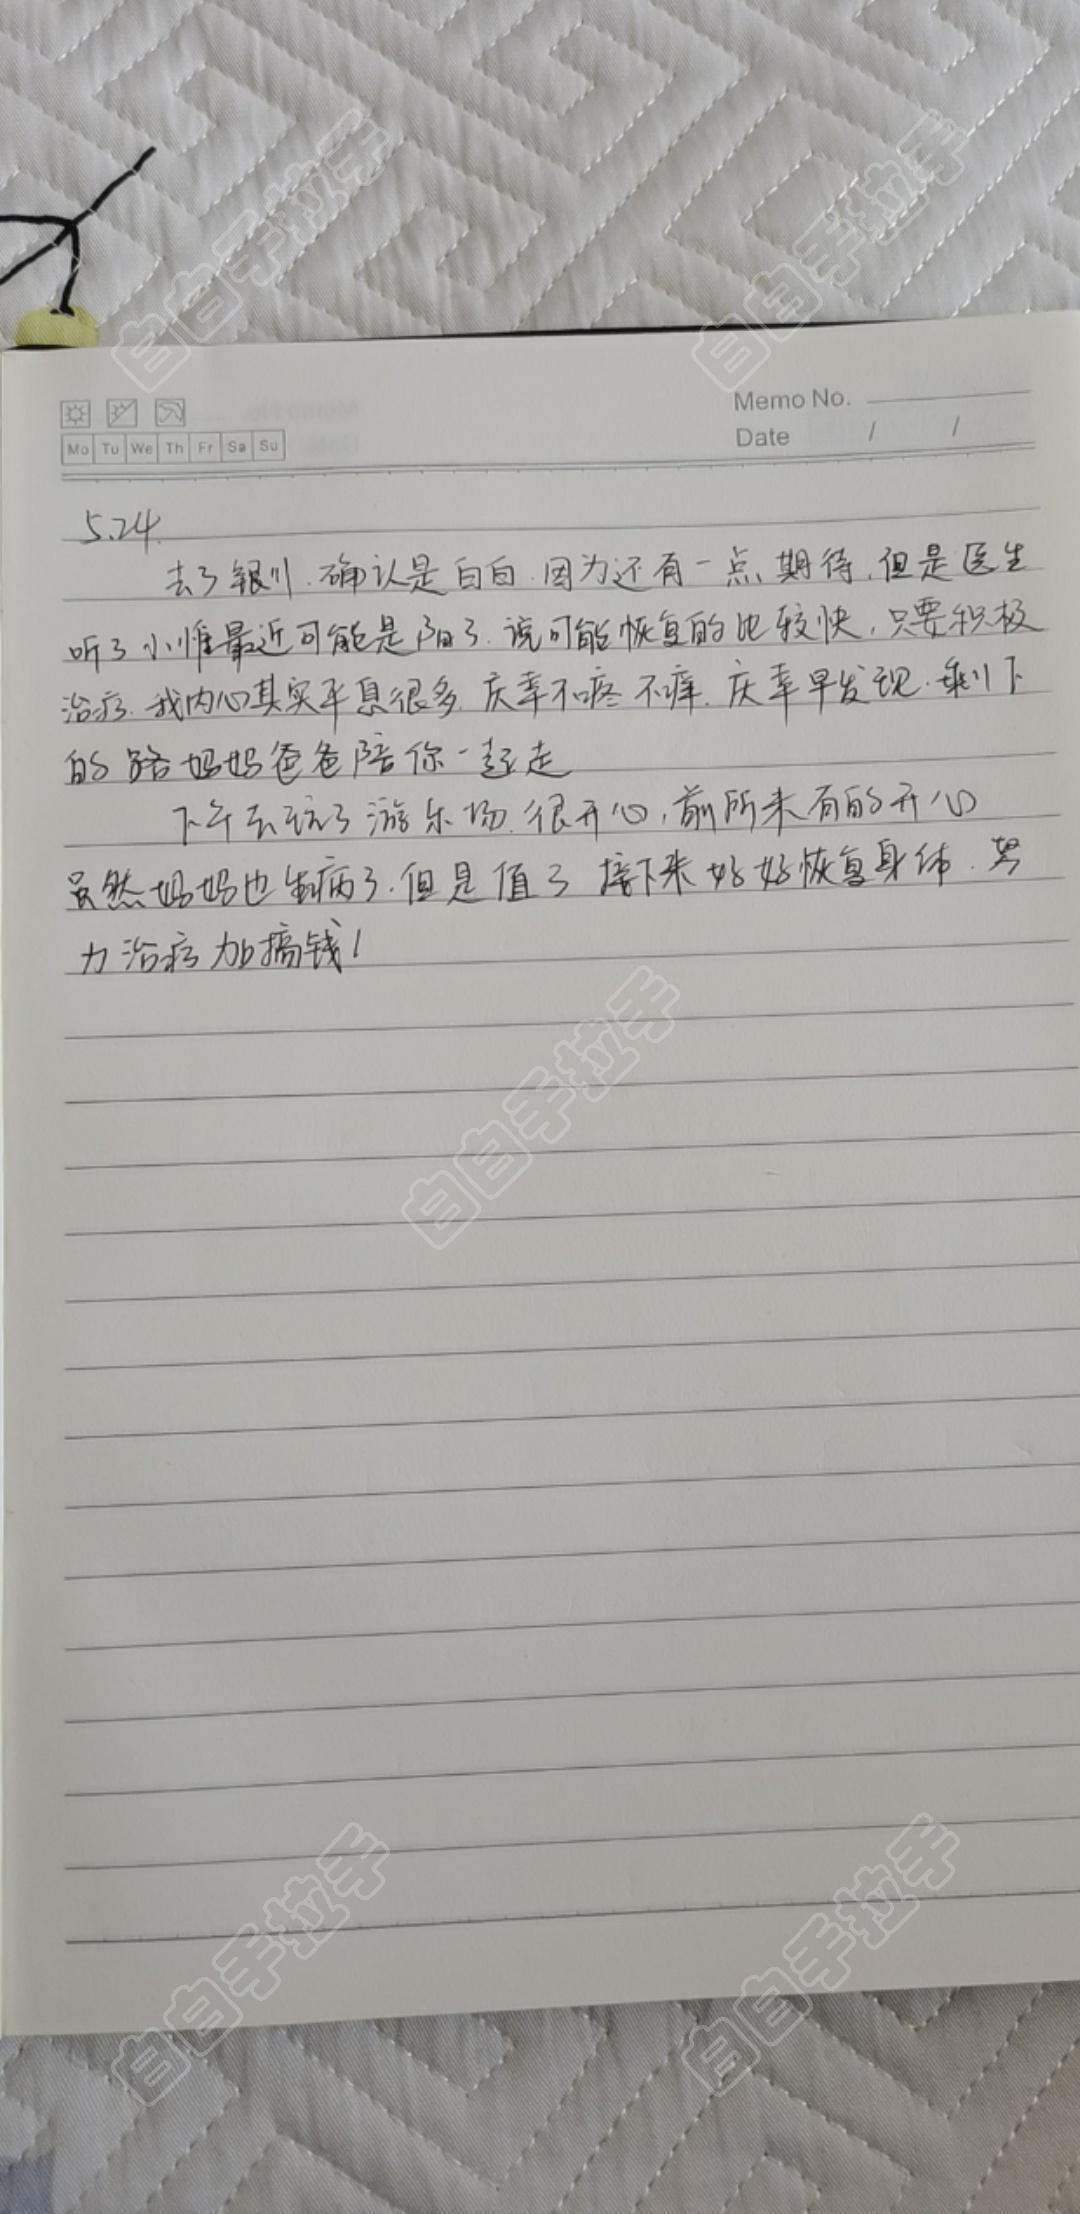 Memo No.
Mo Tu We Th Fr Sa Su
Date / /
5.24.
去了银川.确认是白白.因为还有一点期待,但是医生
听了小惟最近可能是阳了.说可能恢复的比较快,只要积极
治疗.我内心其实平息很多.庆幸不疼不痒.庆幸早发现.剩下
的路妈妈爸爸陪你一起走
下午去玩了游乐场.很开心,前所未有的开心
虽然妈妈也生病了.但是值了 接下来好好恢复身体.努
力治疗加搞钱!
白白手拉手
白白手拉手
白白手拉手
白白手拉手
白白手拉手